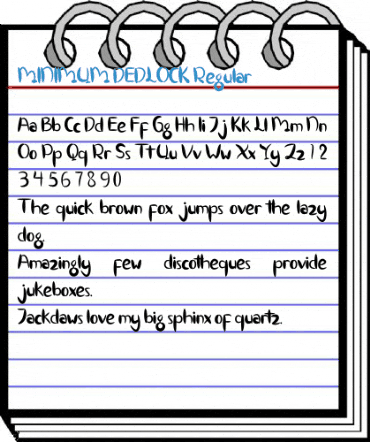 MINIMUM DEDLOCK Regular
Aa Bb Cc Dd Ee Ff Gg Hh Ii Jj Kk Ll Mm Nn
Oo Pp Qq Rr Ss Tt Uu Vv Ww Xx Yy Zz 1 2
3 4 5 6 7 8 9 0
The quick brown fox jumps over the lazy
dog.
Amazingly few discotheques provide
jukeboxes.
Jackdaws love my big sphinx of quartz.